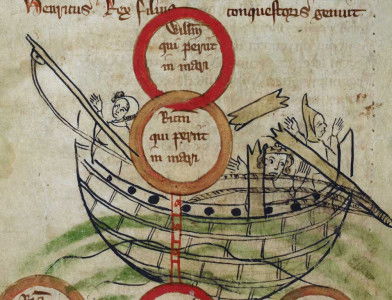 Henricus Rex filius conquestoris genuit
Willm
qui perijt
in mari
Ricm
qui perijt
in mari